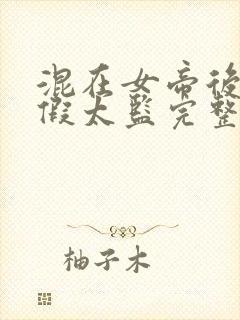 混在女帝後
假太監完整
柚子木